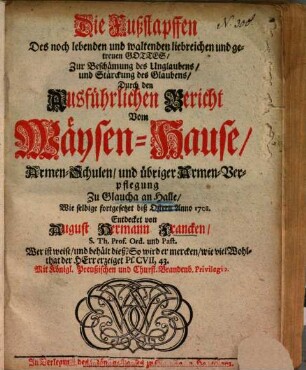 Die Fußstapffen
Des noch lebenden und waltenden liebreichen und ge-
treuen GOTTES/
Zur Beschämung des Unglaubens/
und Stärckung des Glaubens/
Durch den
Ausführlichen Bericht
Vom
Wäysen-Hause/
Armen-Schulen/ und übriger Armen-Ver-
pflegung
Zu Glaucha an Halle/
Wie selbige fortgesetzet biß Ostern Anno 1701.
Entdecket von
August Hermann Francken/
S. Th. Prof. Ord. und Past.
Wer ist weise/ und behält dieß? So wird er mercken/ wie viel Wohl-
that der HErr erzeiget Ps. CVII, 43.
Mit Königl. Preußischen und Churfl. Brandenb. Privilegio.
In Verlegung des